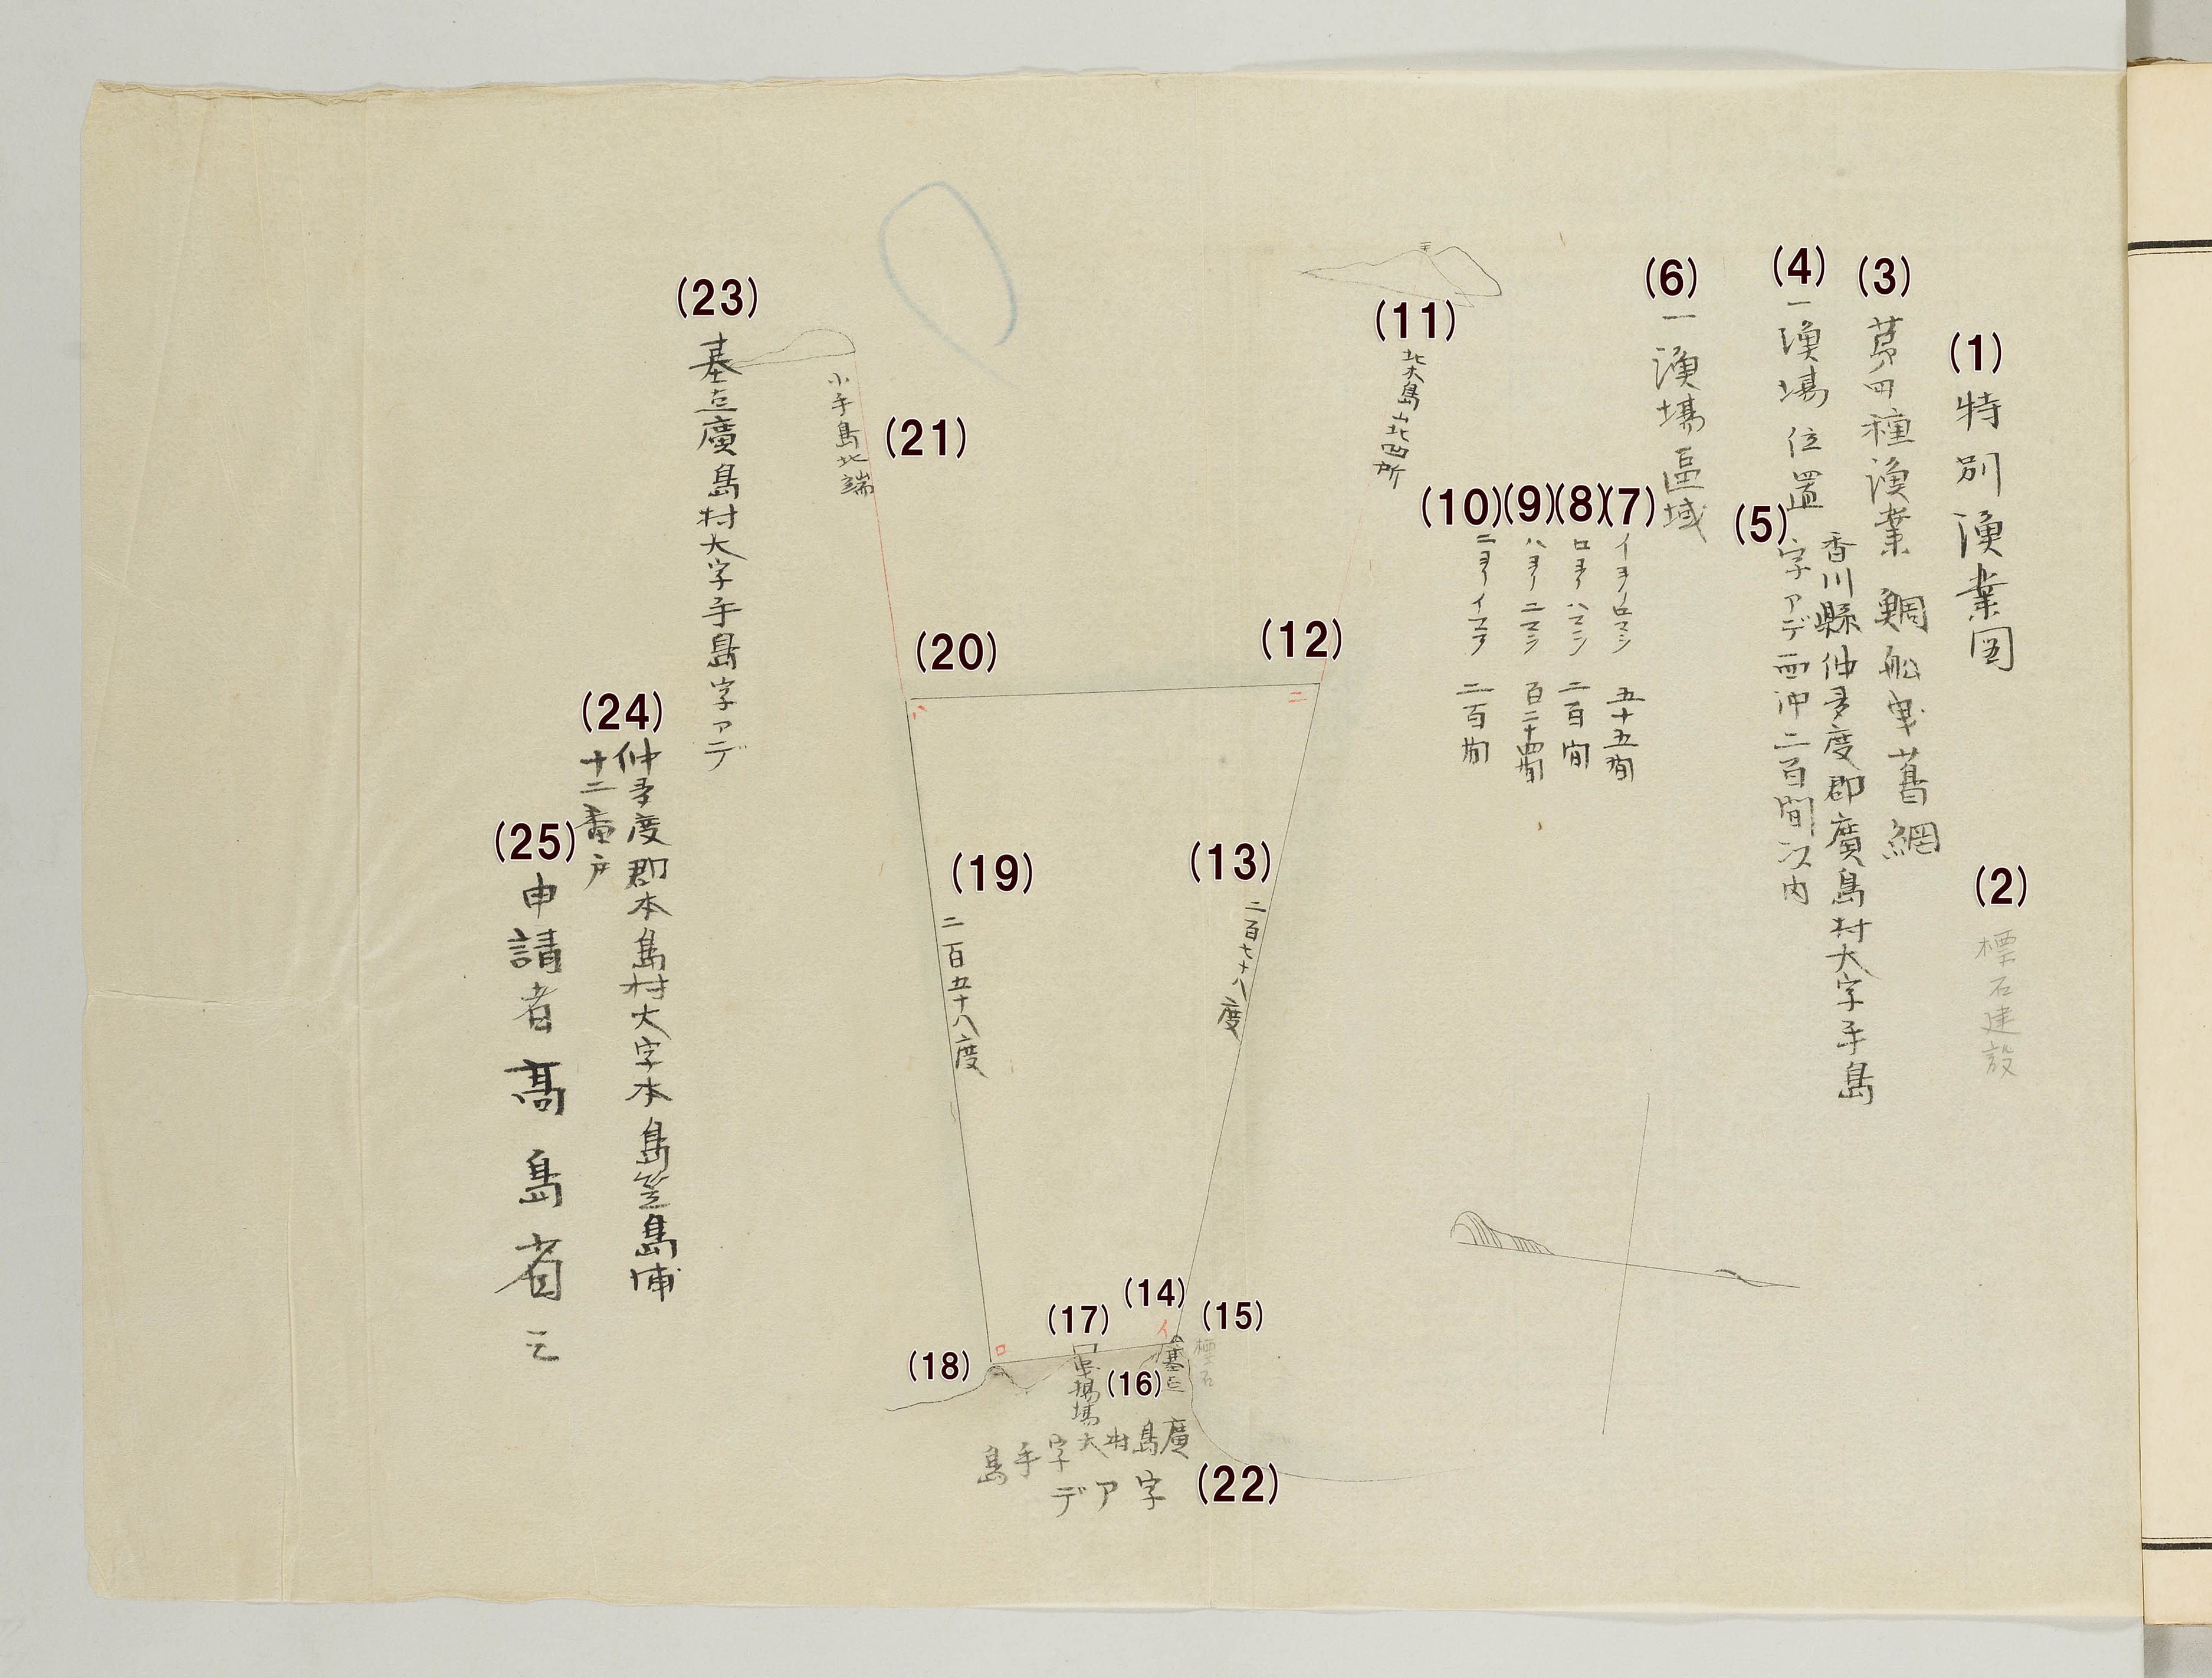 (1)
特別漁業図
(2)
標石建設
(3)
第四種漁業 鯛船曳葛網
(4)
一漁場位置
(5)
香川縣仲多度郡廣島村大字手島
字アデ西沖二百間以内
(6)
一漁場區域
(7)
イヨリロマシ 五十五間
(8)
ロヨリハマシ 二百間
(9)
ハヨリニマシ 百二十四間
(10)
ニヨリイマテ 二百間
(11)
北木島山北西所
(12)
ニ
(13)
二百七十八度
(14)
イ
(15)
標石
(16)
基点
(17)
曳揚場
(18)
ロ
(19)
二百五十八度
(20)
ハ
(21)
小手島北端
(22)
廣島村大字手島
字アデ
(23)
基点廣島村大字手島字アデ
(24)
仲多度郡本島村大字本島笠島浦
十二番戸
(25)
申請者高島省三